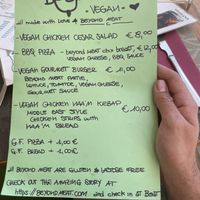 - VEGAN -
all made with love & BEYOND MEAT
- VEGAN CHICKEN CESAR SALAD € 8,00
- BBQ PIZZA - beyond meat chix breast, € 12,00
VEGAN CHEESE, BBQ SAUCE
- VEGAN GOURMET BURGER € 11,00
BEYOND MEAT PATTIE,
LETTUCE, TOMATOE, VEGAN CHEESE,
GOURMET SAUCE
- VEGAN CHICKEN HAA'M KEBAP € 10,00
MIDDLE EAST STYLE
CHICKEN STRIPS WITH
HAA'M BREAD
G.F. PIZZA + 1,00€
G.F. BREAD + 1,00€
all BEYOND MEAT ARE GLUTEN & LACTOSE FREE
CHECK OUT THE AMAZING STORY AT
https://BEYONDMEAT.COM and check is at BOUT